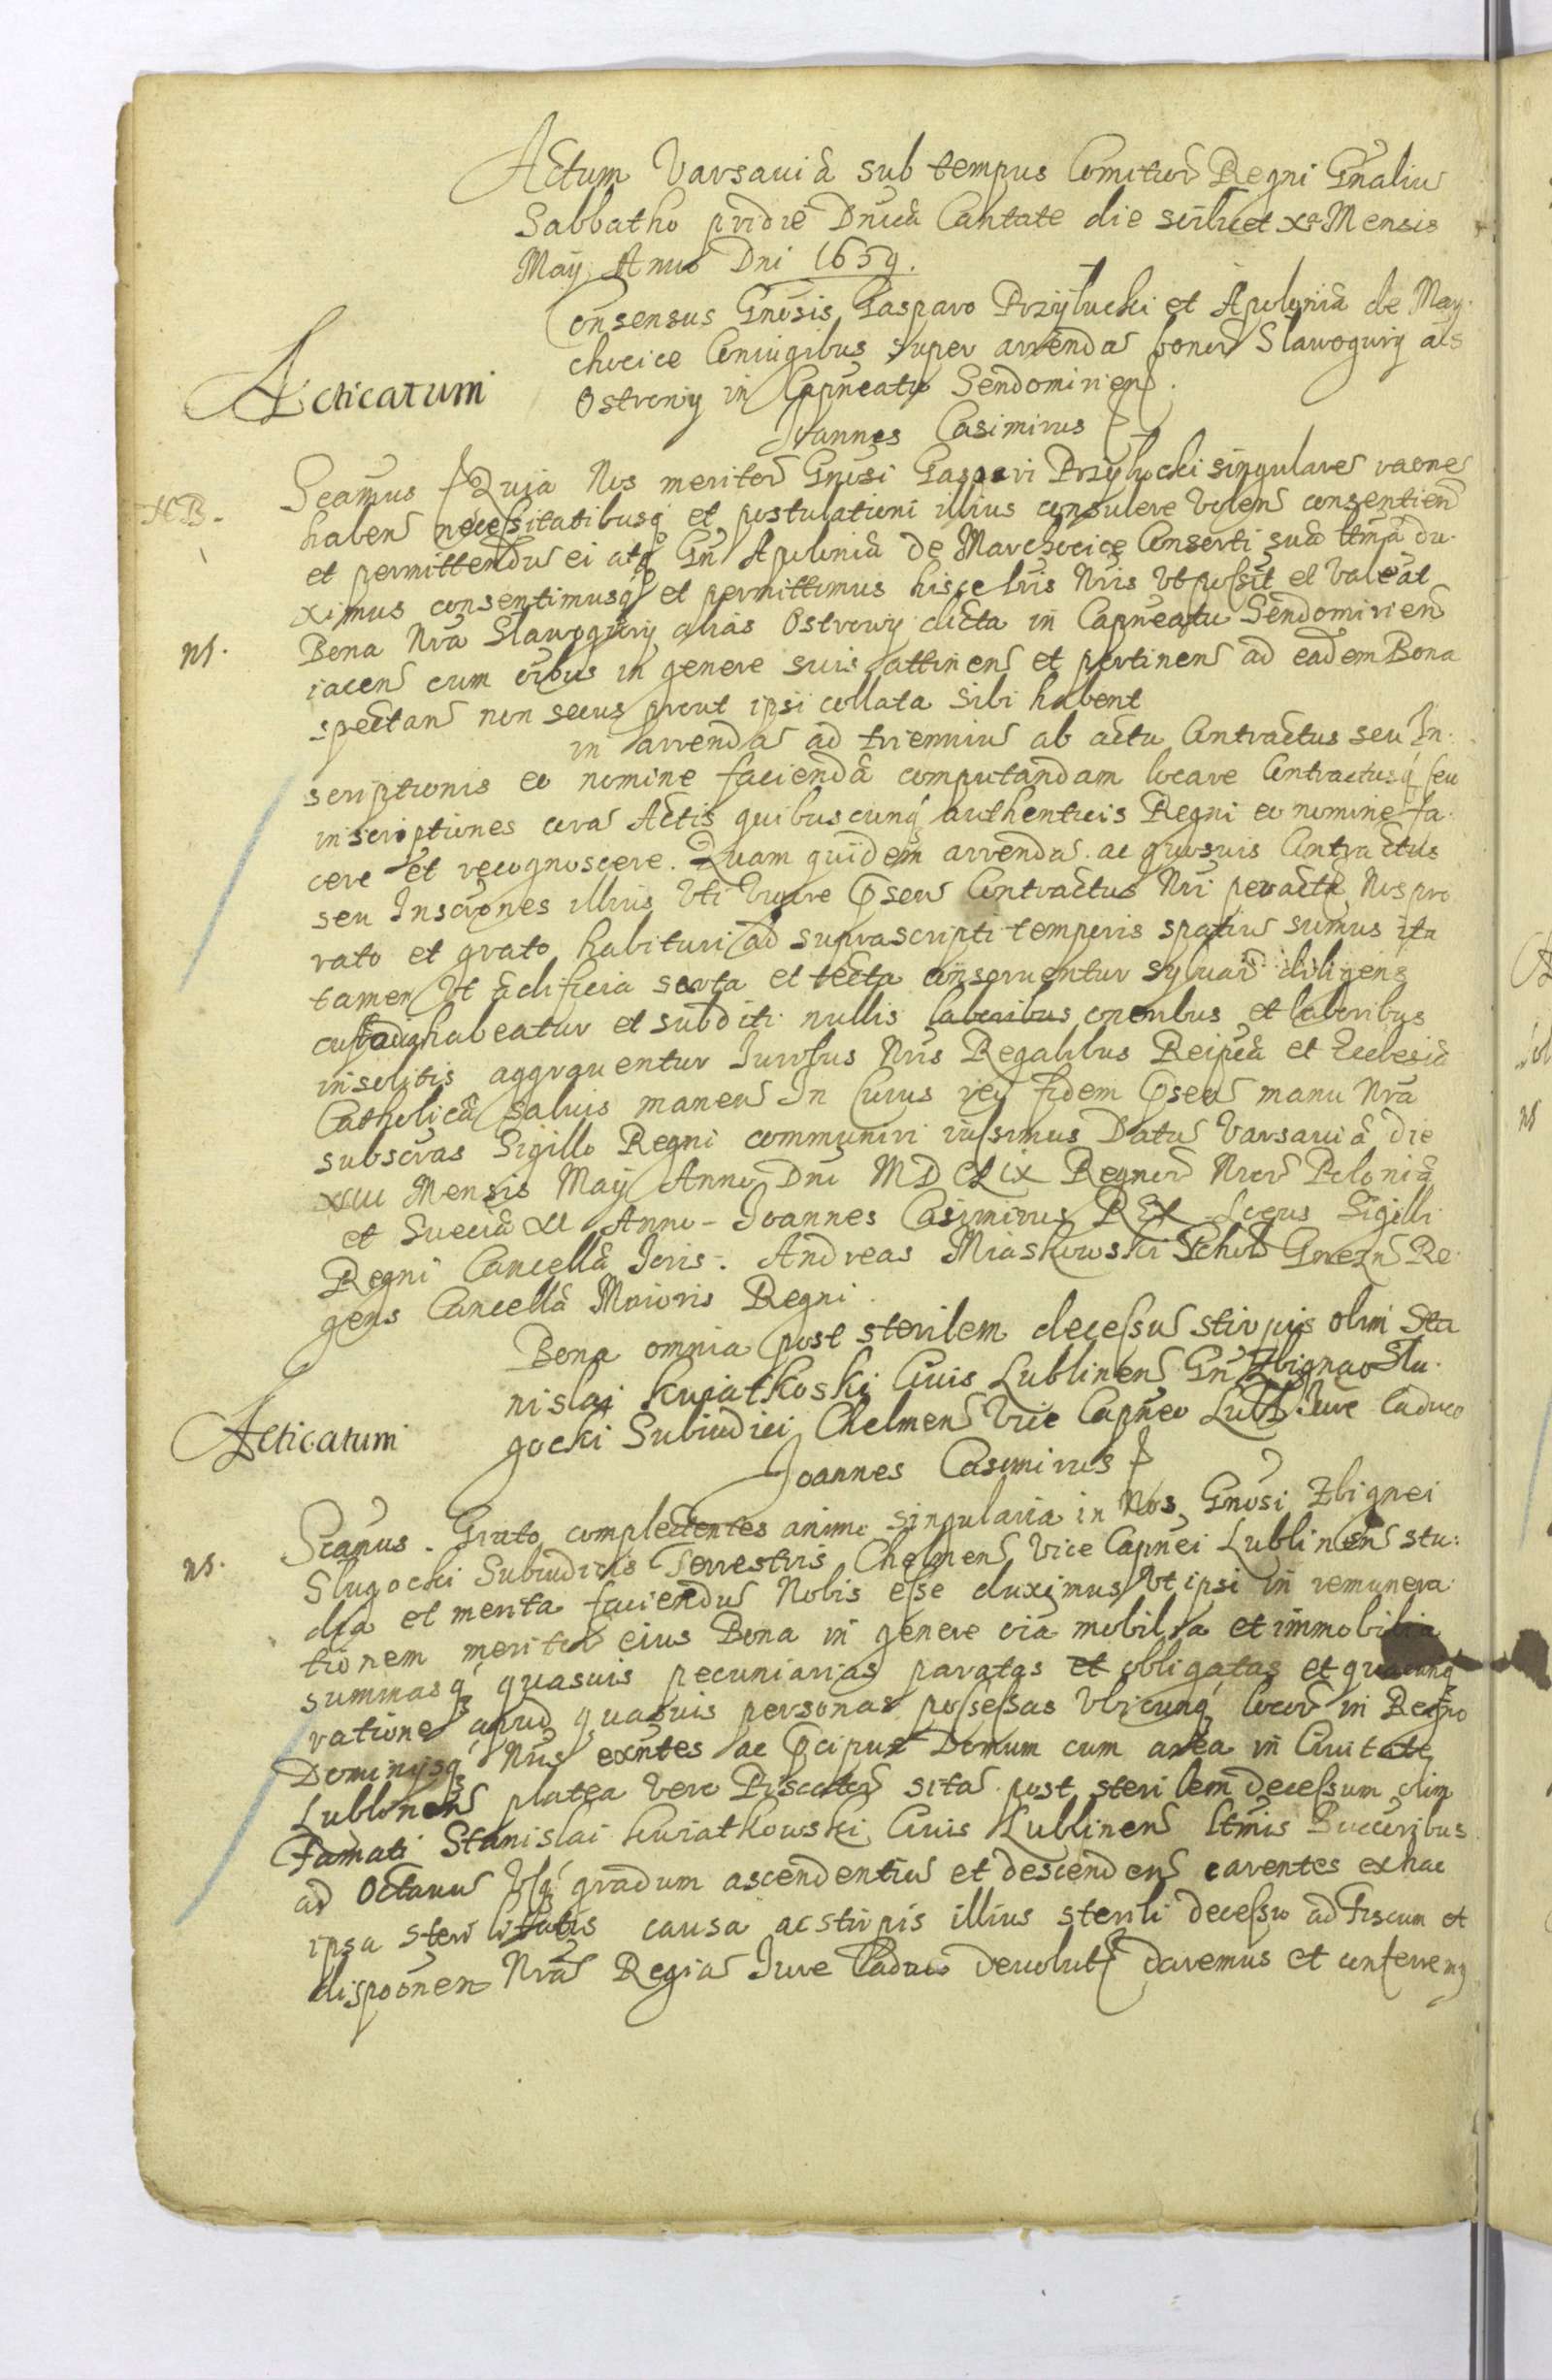 Actum Varsauiæ sub tempus Comitior̃ Regni Gñaliũ
Sabbatho pridie Dnicæ Cantate die scilicet Xa Mensis
Maÿ Anno Dni 1659.
Consensus Gnosis Gasparo Przÿłucki et Apoloniæ de Mar-
chocice Coniugibus super arrendã bonor̃ Slawogury als
Ostrowÿ in Capneatu Sendomirien̄.
Acticatum
Joannes Casimirus
Scamus Quia Nos meritor̃ Gnosi Gaspari Przyłucki singularẽ raõnẽ
N.B.
haben̄ necessitatibusq́ et postulationi illius consulere volen̄ consentien̄
et permittendũ ei atq́ Gn̄ Apoloniæ de Marchocice Consorti suæ ltmæ du-
ximus consentimusq́ et permittimus hisce lris Nris Vt possit et Valeat
ns.
Bona Nra Slawogury alias Ostrowÿ dicta in Capneatu Sendomirien̄
iacen̄ cum oibus in genere suis attinen̄ et pertinen̄ ad eadem Bona
spectan̄ non secus prout ipsi collata sibi habent
in arrendã ad trienniũ ab actu Contractus seu In-
scriptionis eo nomine faciendæ computandam locare Contractusq́ seu
inscriptiones corã Actis quibuscunq́ authenticis Regni eo nomine fa-
cere et recognoscere. Quam quidem arrendã ac quosuis Contractus
seu Inscriones illius Vti Vigore Psen̄ Contractus Nri peractæ Nos pro
rato et grato habituri ad suprascripti temporis spatiũ sumus ita
tamen Vt ædificia sarta et tecta conseruentur syluar̃ diligens
custodia habeatur et subditi nullis laboribus oneribus et laboribus
insolitis aggrauentur Iuribus Nris Regalibus Reipcæ et Ecclesiæ
Catholicæ saluis manen̄ In Cuius rei fidem Psen̄ manu Nra
subscras Sigillo Regni communiri iussimus Datũ Varsauiæ die
Mensis Maÿ Anno Dni MDCLIX Regnor̃ Nror̃ Poloniæ
et Sueciæ XI Anno - Joannes Casimirus REX Locus Sigilli
Regni Cancellæ Ioris. Andreas Miaskowski Schol̄ Gnezn̄ Re-
gens Cancellæ Maioris Regni.
Bona omnia post sterilem decessũ stirpis olim Sta
nislai Kwiatkoski Ciuis Lublinen̄ Gn̄ Zbigneo Słu-
Acticatum
gocki Subiudici Chelmen̄ Vice Capneo Lubl̄ Iure Caduco
Joannes Casimirus
Scamus. Grato complectentes animo singularia in Nos Gnosi Zbignei
ns.
Slugocki Subiudicis Terrestris Chelmen̄ Vice Capnei Lublinen̄ stu-
dia et merita faciendũ Nobis esse duximus Vt ipsi in remunera-
tionem meritor̃ eius Bona in genere oia mobilia et immobilia
summasq́ quasuis pecuniarias paratas et obligatas et quacunq́
rationẽ apud quasuis personas possessas Vbicunq́ locor̃ in Regno
Dominÿsq́ Nris exntes ac Pcipue Domum cum area in Ciuitate
Lublinen̄ platea vero Piscator̃ sitã post sterilem decessum olim
Famati Stanislai Kwiatkowski Ciuis Lublinen̄ ltmis Succoribus
ad Octauũ Vsq́ gradum ascendentiũ et descenden̄ carentes ex hac
ipsa sterilitatis causa ac stirpis illius sterili decessu ad Fiscum et
dispoonen̄ Nrã Regiã Iure Caduco deuolut̃ daremus et conferremꝰ